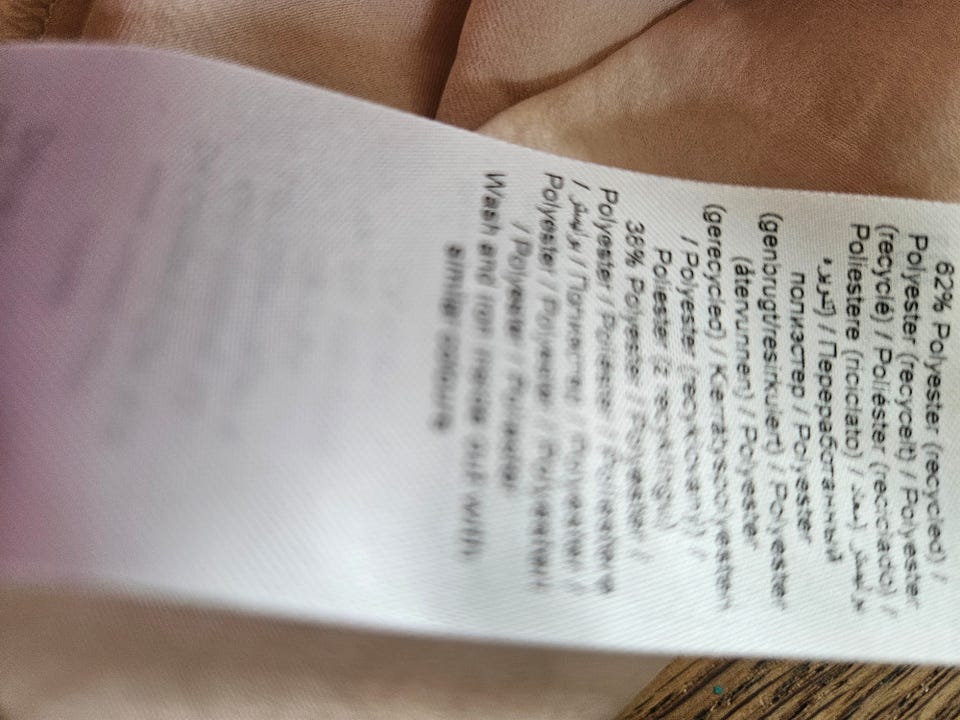 62% Polyester (recycled) /
Polyester (recycelt) / Polyester
(recyclé) / Poliéster (reciclado) /
Poliestere (riciclato) /
/ Переработанный
полиэстер / Polyester
(genbrugt/resirkulert) / Polyester
(återvunnen) / Polyester
(gerecycled) / Kierrätyspolyesteri
/ Polyester (recyklovaný) /
Poliester (z recyklingu)
38% Polyester / Polyester /
Polyester / Poliéster / Poliestere
/ بوليستر / Полиэстер / Polyester /
Polyester / Polyester / Polyesteri
/ Polyester / Poliester
Wash and iron inside out with
similar colours